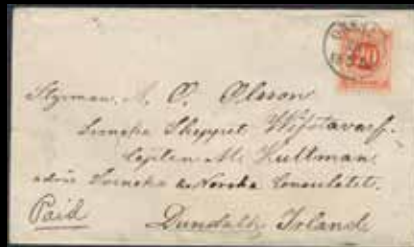 Styrman A. O. Olsson
Svenska Skeppet Wifstavarf.
Capten M. Hultman
adris Svenska & Norska Consulatet.
Paid Dundalk Irland
20